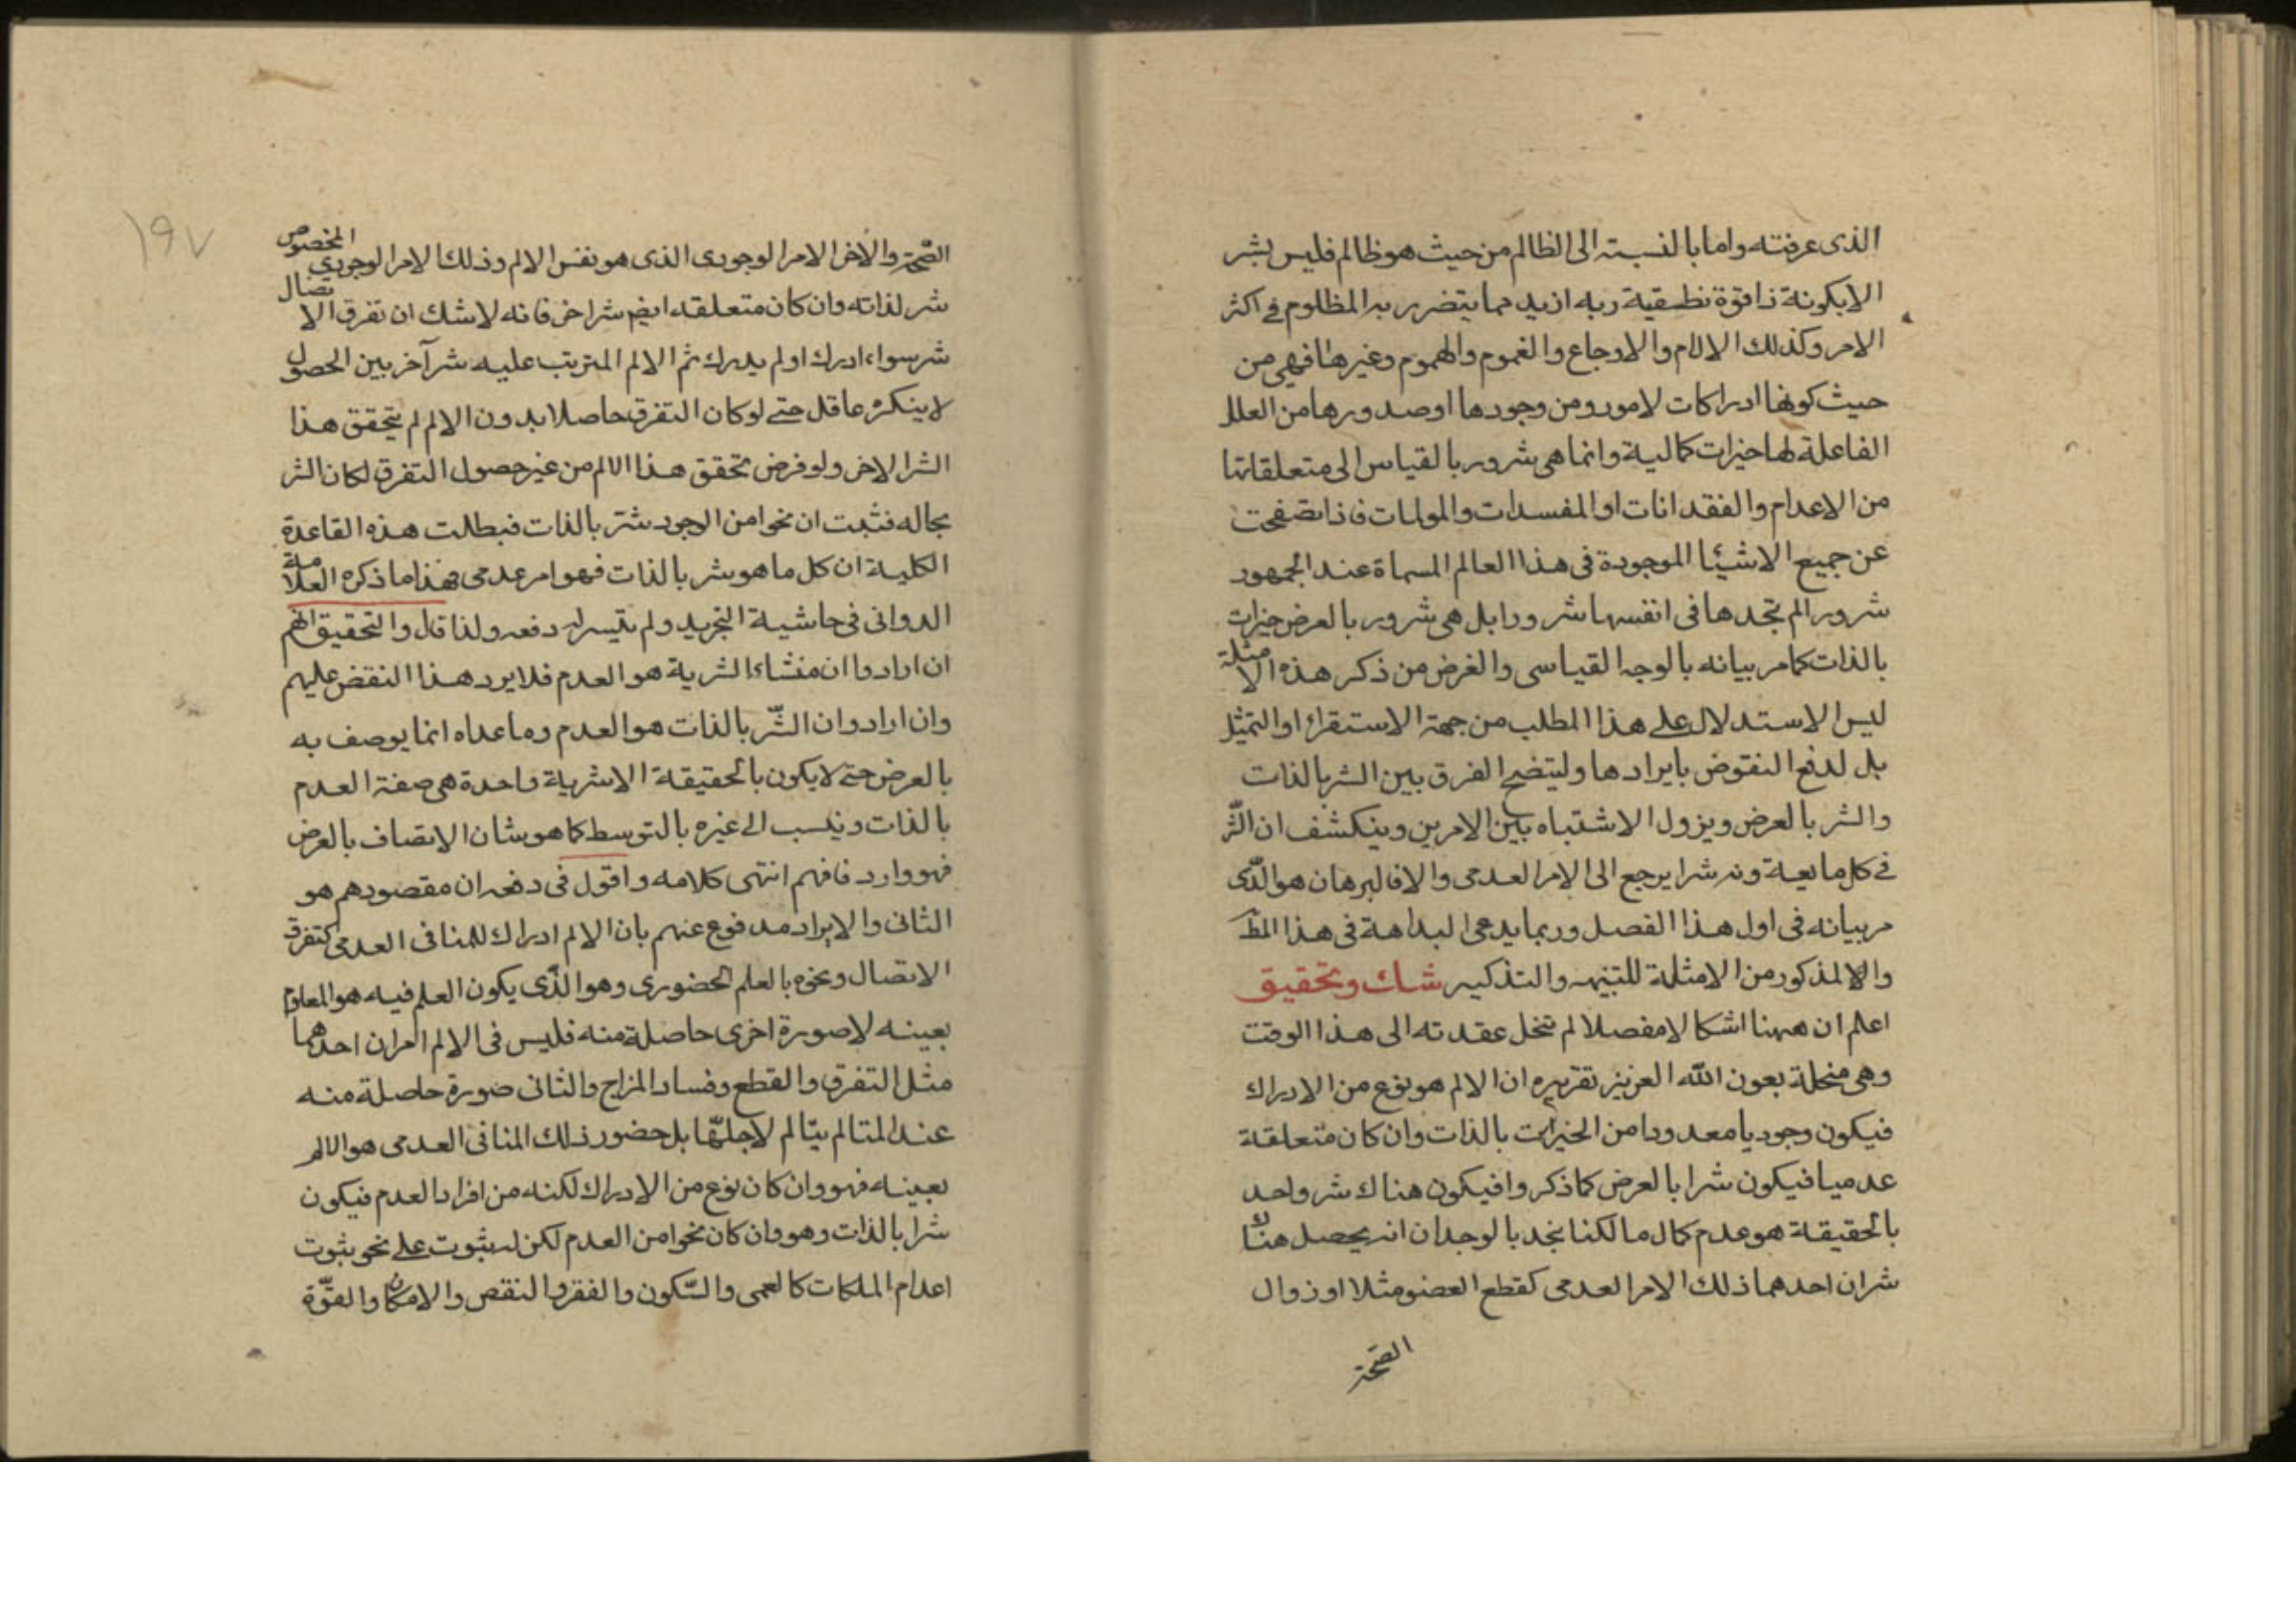 الذى عرفته واما بالنسبة الى الظالم من حيث هو ظالم فليس بشر
الا بكونة ذا قوة نطقية ربه ازيد مما يتضرر به المظلوم فى اكثر
الامر وكذلك الالام والاوجاع والغموم والهموم وغيرها فهى من
حيث كونها ادراكات لامور ومن وجودها او صدورها من العلل
الفاعلة لها خيرات كمالية وانما هى شرور بالقياس الى متعلقاتها
من الاعدام والفقدانات او المفسدات والمولمات فاذا تصفحت
عن جميع الاشيئا الموجودة فى هذا العالم المسماة عند الجمهور
شرورا لم تجدها فى انفسها شرورا بل هى شرور بالعرض خيرات
بالذات كما مر بيانه بالوجه القياسى والغرض من ذكر هذه الامثلة
ليس الاستدلال على هذا المطلب من جهة الاستقراء او التمثيل
بل لدفع النقوض بايرادها وليتضح الفرق بين الشر بالذات
والشر بالعرض ويزول الاشتباه بين الامرين وينكشف ان الشر
فى كل ما يعدونه شرا يرجع الى الامر العدمى والا فالبرهان هو الذى
مر بيانه فى اول هذا الفصل وربما يدعى البداهة فى هذا المط
والا لمذكور من الامثلة للتنبيه والتذكير شك وتحقيق
اعلم ان ههنا اشكالا مفصلا لم تنحل عقدته الى هذا الوقت
وهى منحلة بعون الله العزيز تقريره ان الالم هو نوع من الادراك
فيكون وجوديا معدودا من الخيرات بالذات وان كان متعلقة
عدميا فيكون شرا بالعرض كما ذكروا فيكون هناك شر واحد
بالحقيقة هو عدم كمال ما لكنا نجد بالوجدان انه يحصل هناك
شران احدهما ذلك الامر العدمى كقطع العضو مثلا او زوال
الصحة
١٩٧
الصحة والاخر الامر الوجودى الذى هو نفس الالم وذلك الامر الوجودي المخصوص
شر لذاته وان كان متعلقه ايضر شرا اخر فانه لا شك ان تفرق الاتصال
شر سواء ادرك او لم يدرك ثم الالم المترتب عليه شر آخر بين الحصول
لا ينكره عاقل حتى لو كان التفرق حاصلا بدون الالم لم يتحقق هذا
الشر الاخر ولو فرض تحقق هذا الالم من غير حصول التفرق لكان الشر
بحاله فثبت ان نحوا من الوجود شر بالذات فبطلت هذه القاعدة
الكلية ان كل ما هو شر بالذات فهو امر عدمى فهذا ما ذكره العلامة
الدوانى فى حاشية التجريد ولم يتيسر له دفعه ولذا قال والتحقيق انهم
ان ارادوا ان منشاء الشرية هو العدم فلا يرد هذا النقض عليهم
وان ارادوا ان الشر بالذات هو العدم وما عداه انما يوصف به
بالعرض حتى لا يكون بالحقيقة الا شرية واحدة هى صفة العدم
بالذات وينسب الى غيره بالتوسط كما هو شان الاتصاف بالعرض
فهو وارد فافهم انتهى كلامه واقول فى دفعه ان مقصودهم هو
الثانى والايراد مدفوع عنهم بان الالم ادراك للمنافى العدمى كتفرق
الاتصال ونحوه بالعلم الحضورى وهو الذى يكون العلم فيه هو المعلوم
بعينه لا صورة اخرى حاصلة منه فليس فى الالم امران احدهما
مثل التفرق والقطع وفساد المزاج والثانى صورة حاصلة منه
عند المتالم يتالم لاجلها بل حضور ذلك المنافى العدمى هو الالم
بعينه فهو وان كان نوع من الادراك لكنه من افراد العدم فيكون
شرا بالذات وهو وان كان نحوا من العدم لكن له ثبوت على نحو ثبوت
اعدام الملكات كالعمى والسكون والفقر والنقص والامكان والقوة